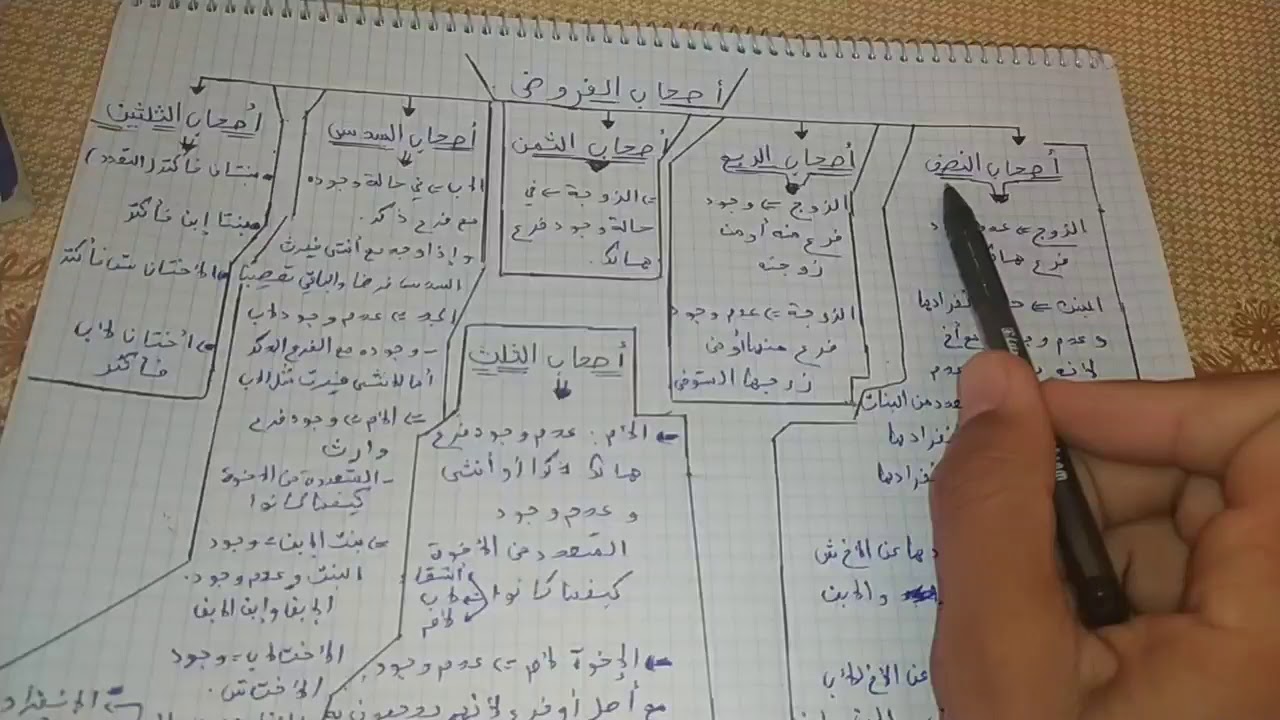 أصحاب الفروض
أصحاب النصف
الزوج => عدم
فرع
البنت =>
وعدم
لانه
من البنات
عن الاخ ش
والابن
عن الاخ لأب
أصحاب الربع
الزوج => وجود
فرع منه أو من
زوجته
الزوجة => عدم وجود
فرع منها أو من
زوجها المتوفى
أصحاب الثمن
=> الزوجة => في
حالة وجود فرع
هالك
أصحاب الثلث
الأم: عدم وجود فرع
هالك ذكرا أو أنثى
و عدم وجود
المتعدد من الإخوة
كيفما كانوا
أشقاء
لأب
لأم
الإخوة لأم => عدم وجود
مع أصل أو فرع لأنهم
أصحاب السدس
الاب => في حالة وجوده
مع فرع ذكر
وإذا وجد مع أنثى فيرث
السدس فرضا والباقي تعصيبا
الجد => عدم وجود الاب
- وجوده مع الفرع الذكر
أما الانثى فيرث مثل الاب
=> الأم => وجود فرع
وارث
- المتعدد من الاخوة
كيفما كانوا
=> بنت الابن => وجود
البنت وعدم وجود
الابن وابن الابن
الأخت لأب => وجود
الأخت ش.
أصحاب الثلثين
بنتان فأكثر (التعدد)
بنتا إبن فأكثر
الأختان ش فأكثر
أختان لأب
فأكثر